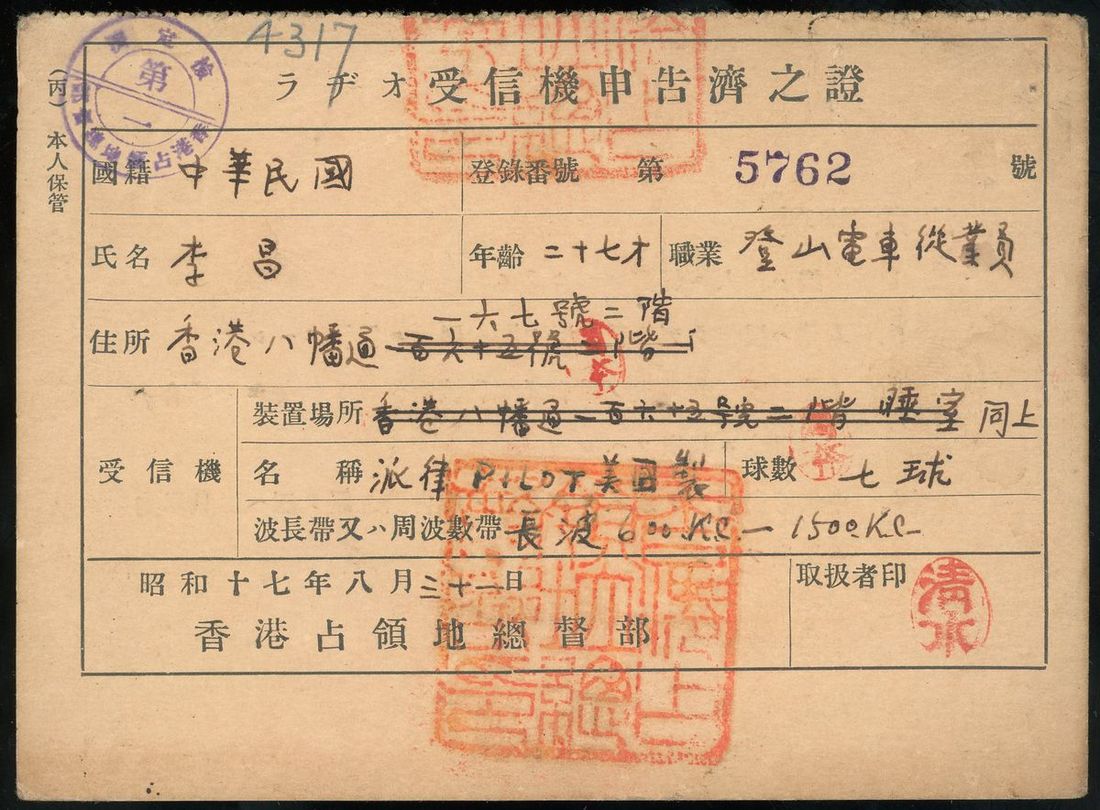 4317
ラヂオ受信機申告濟之證
(丙) 本人保管
檢定濟
第一
國籍 中華民國 登錄番號 第 5762 號
氏名 李昌 年齡 二十七才 職業 登山電車從業員
一六七號二階
住所 香港八幡通 百六十五號二階
受信機
裝置場所 香港八幡通一百六十五號二階 睡室 同上
名稱 派律 PILOT 美囯製 球數 七球
波長帶又ハ周波數帶 長波 600KC—1500KC
昭和十七年八月三十一日 取扱者印
清水
香港占領地總督部